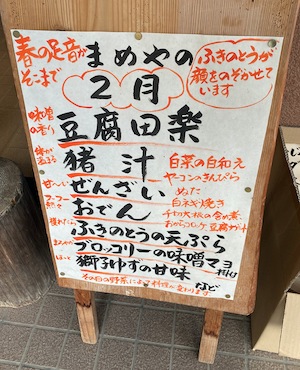 春の足音が
そこまで
まめやの
2月
ふきのとうが
顔をのぞかせて
います
味噌の香り
豆腐田楽
猪汁
白菜の白和え
ヤーコンのきんぴら
ぜんざい
ぬた
白ネギ焼き
フーフー
おでん
千切大根の含め煮
おからコロッケ、豆腐
ふきのとうの天ぷら
ブロッコリーの味噌マヨ
獅子ゆずの甘味
など
その日の野菜によって料理が変わります